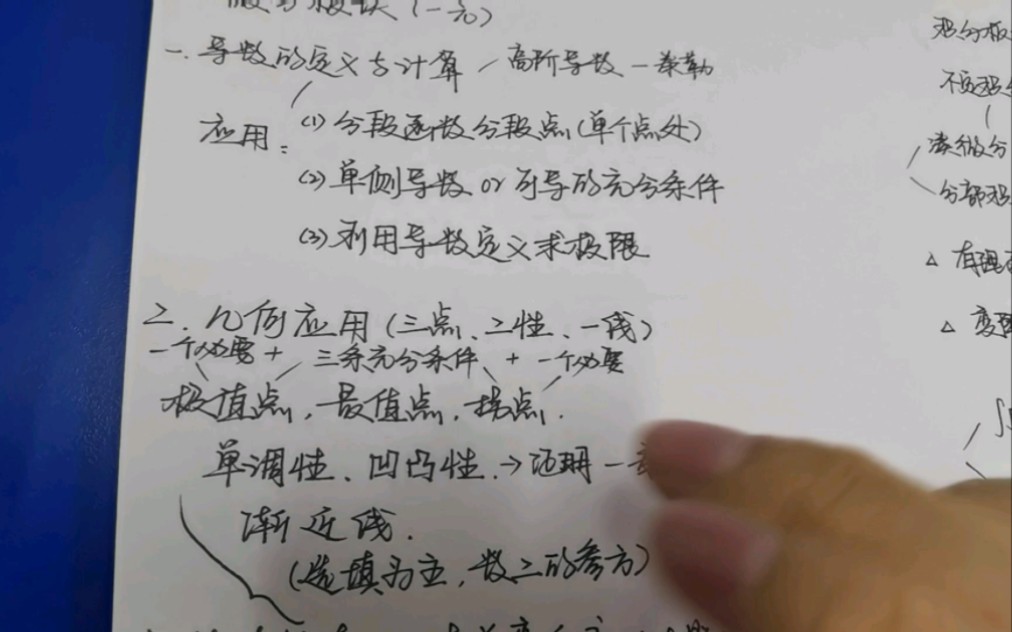 一. 导数的定义与计算 / 高阶导数 - 泰勒
应用:
(1) 分段函数分段点(单个点处)
(2) 单侧导数 or 可导的充分条件
(3) 利用导数定义求极限
二. 几何应用(三点、二性、一线)
一个必要 + 三条充分条件 + 一个必要
极值点, 最值点, 拐点.
单调性、凹凸性. → 证明一
渐近线.
(选填为主, 数二的参方)
积分
不定积
凑微分
分部积
△ 有理
△ 变
∫